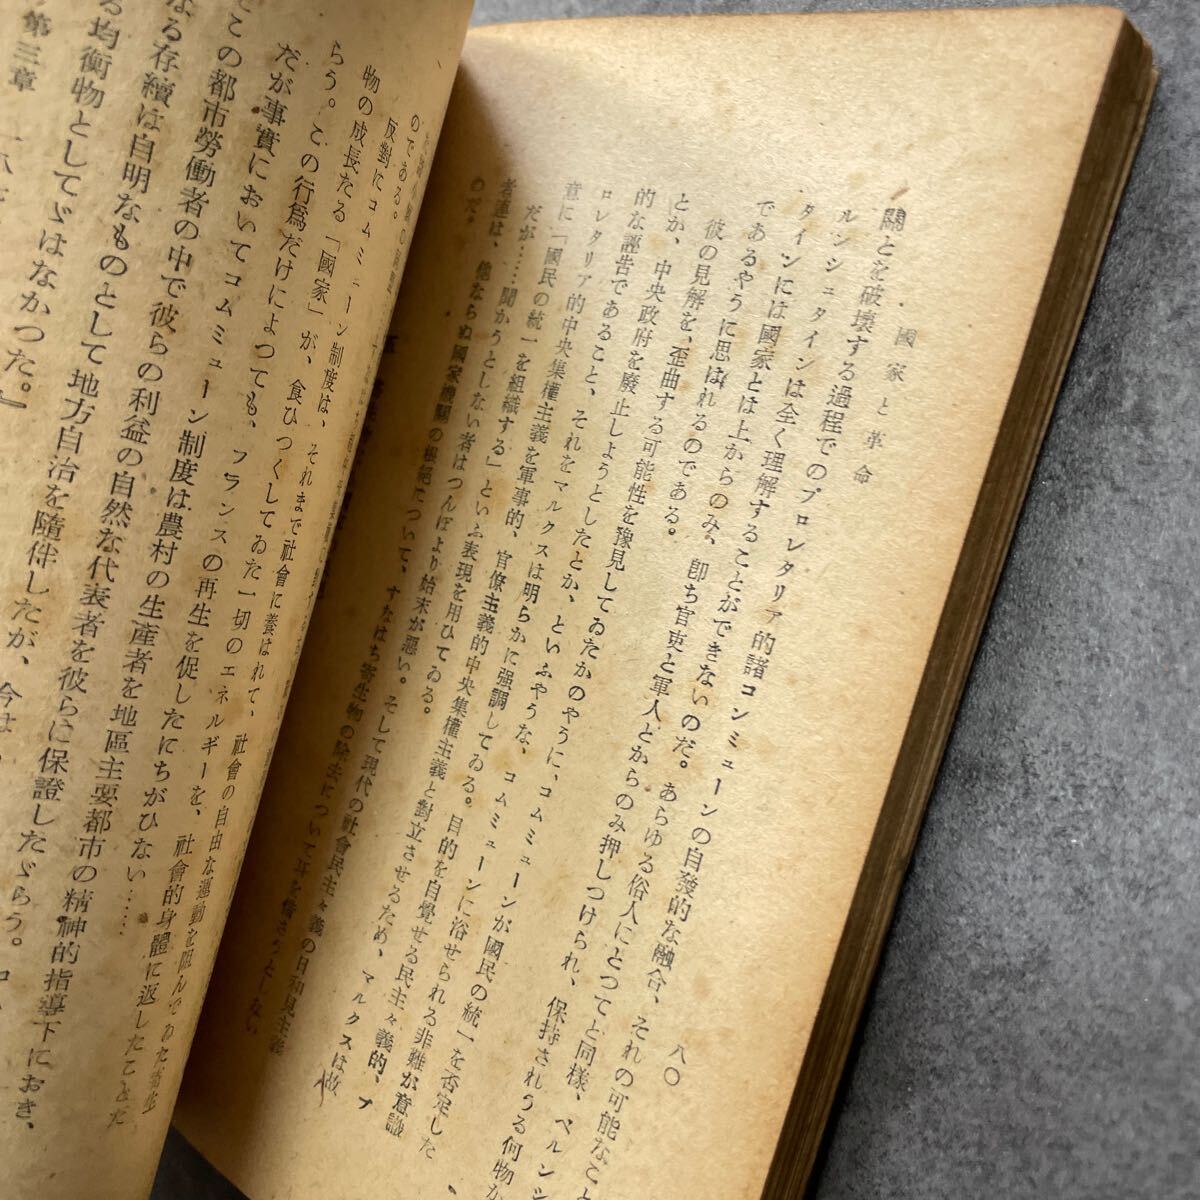 國家と革命
八〇
關とを破壊する過程でのプロレタリア的諸コンミューンの自發的な融合、それの可能なこと
ルンシュタインは全く理解することができないのだ。あらゆる俗人にとつてと同様、ベルンシ
タインには國家とは上からのみ、卽ち官吏と軍人とからのみ押しつけられ、保持されうる何物か
であるやうに思はれるのである。
彼の見解を、歪曲する可能性を豫見してゐたかのやうに、コムミューンが國民の統一を否定した
とか、中央政府を廢止しようとしたとか、といふやうな、コムミューンに浴せられる非難が意識
的な誣告であること、それをマルクスは明らかに强調してゐる。目的を自覺せる民主々義的、プ
ロレタリア的中央集權主義を軍事的、官僚主義的中央集權主義と對立させるため、マルクスは故
意に「國民の統一を組織する」といふ表現を用ひてゐる。
だが……聞かうとしない者はつんぼより始末が悪い。そして現代の社會民主々義の日和見主義
者達は、他ならぬ國家機關の根絕について、すなはち寄生物の除去について耳を藉さうとしない
のだ。
のである。
反對にコムミューン制度は、それまで社會に養はれて、社會の自由な運動を阻んでゐた寄生
物の成長たる「國家」が、食ひつくしてゐた一切のエネルギーを、社會的身體に返したことだ
らう。この行爲だけによつても、フランスの再生を促したにちがひない……
だが事實においてコムミューン制度は農村の生産者を地區主要都市の精神的指導下におき、
そこの都市勞働者の中で彼らの利益の自然な代表者を彼らに保證したゞらう。コ
なる存續は自明なものとして地方自治を隨伴したが、今は
る均衡物としてゞはなかつた。』
第三章